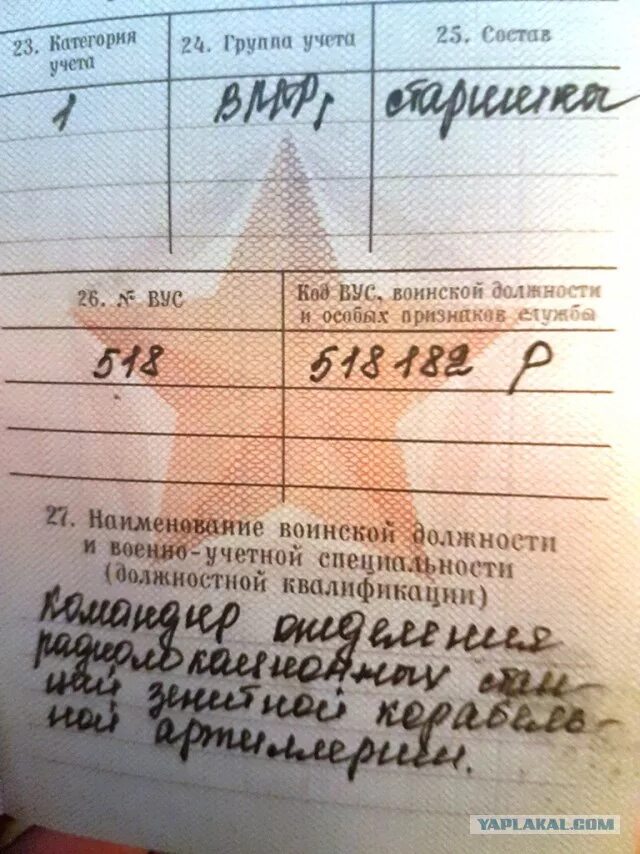 23. Категория учета
24. Группа учета
25. Состав
1 старшины
26. № ВУС
Код ВУС, воинской должности
и особых признаков службы
518
518 182 Р
27. Наименование воинской должности
и военно-учетной специальности
(должностной квалификации)
Командир отделения
радиолокационных стан-
ций зенитной корабель-
ной артиллерии.
YAPLAKAL.COM